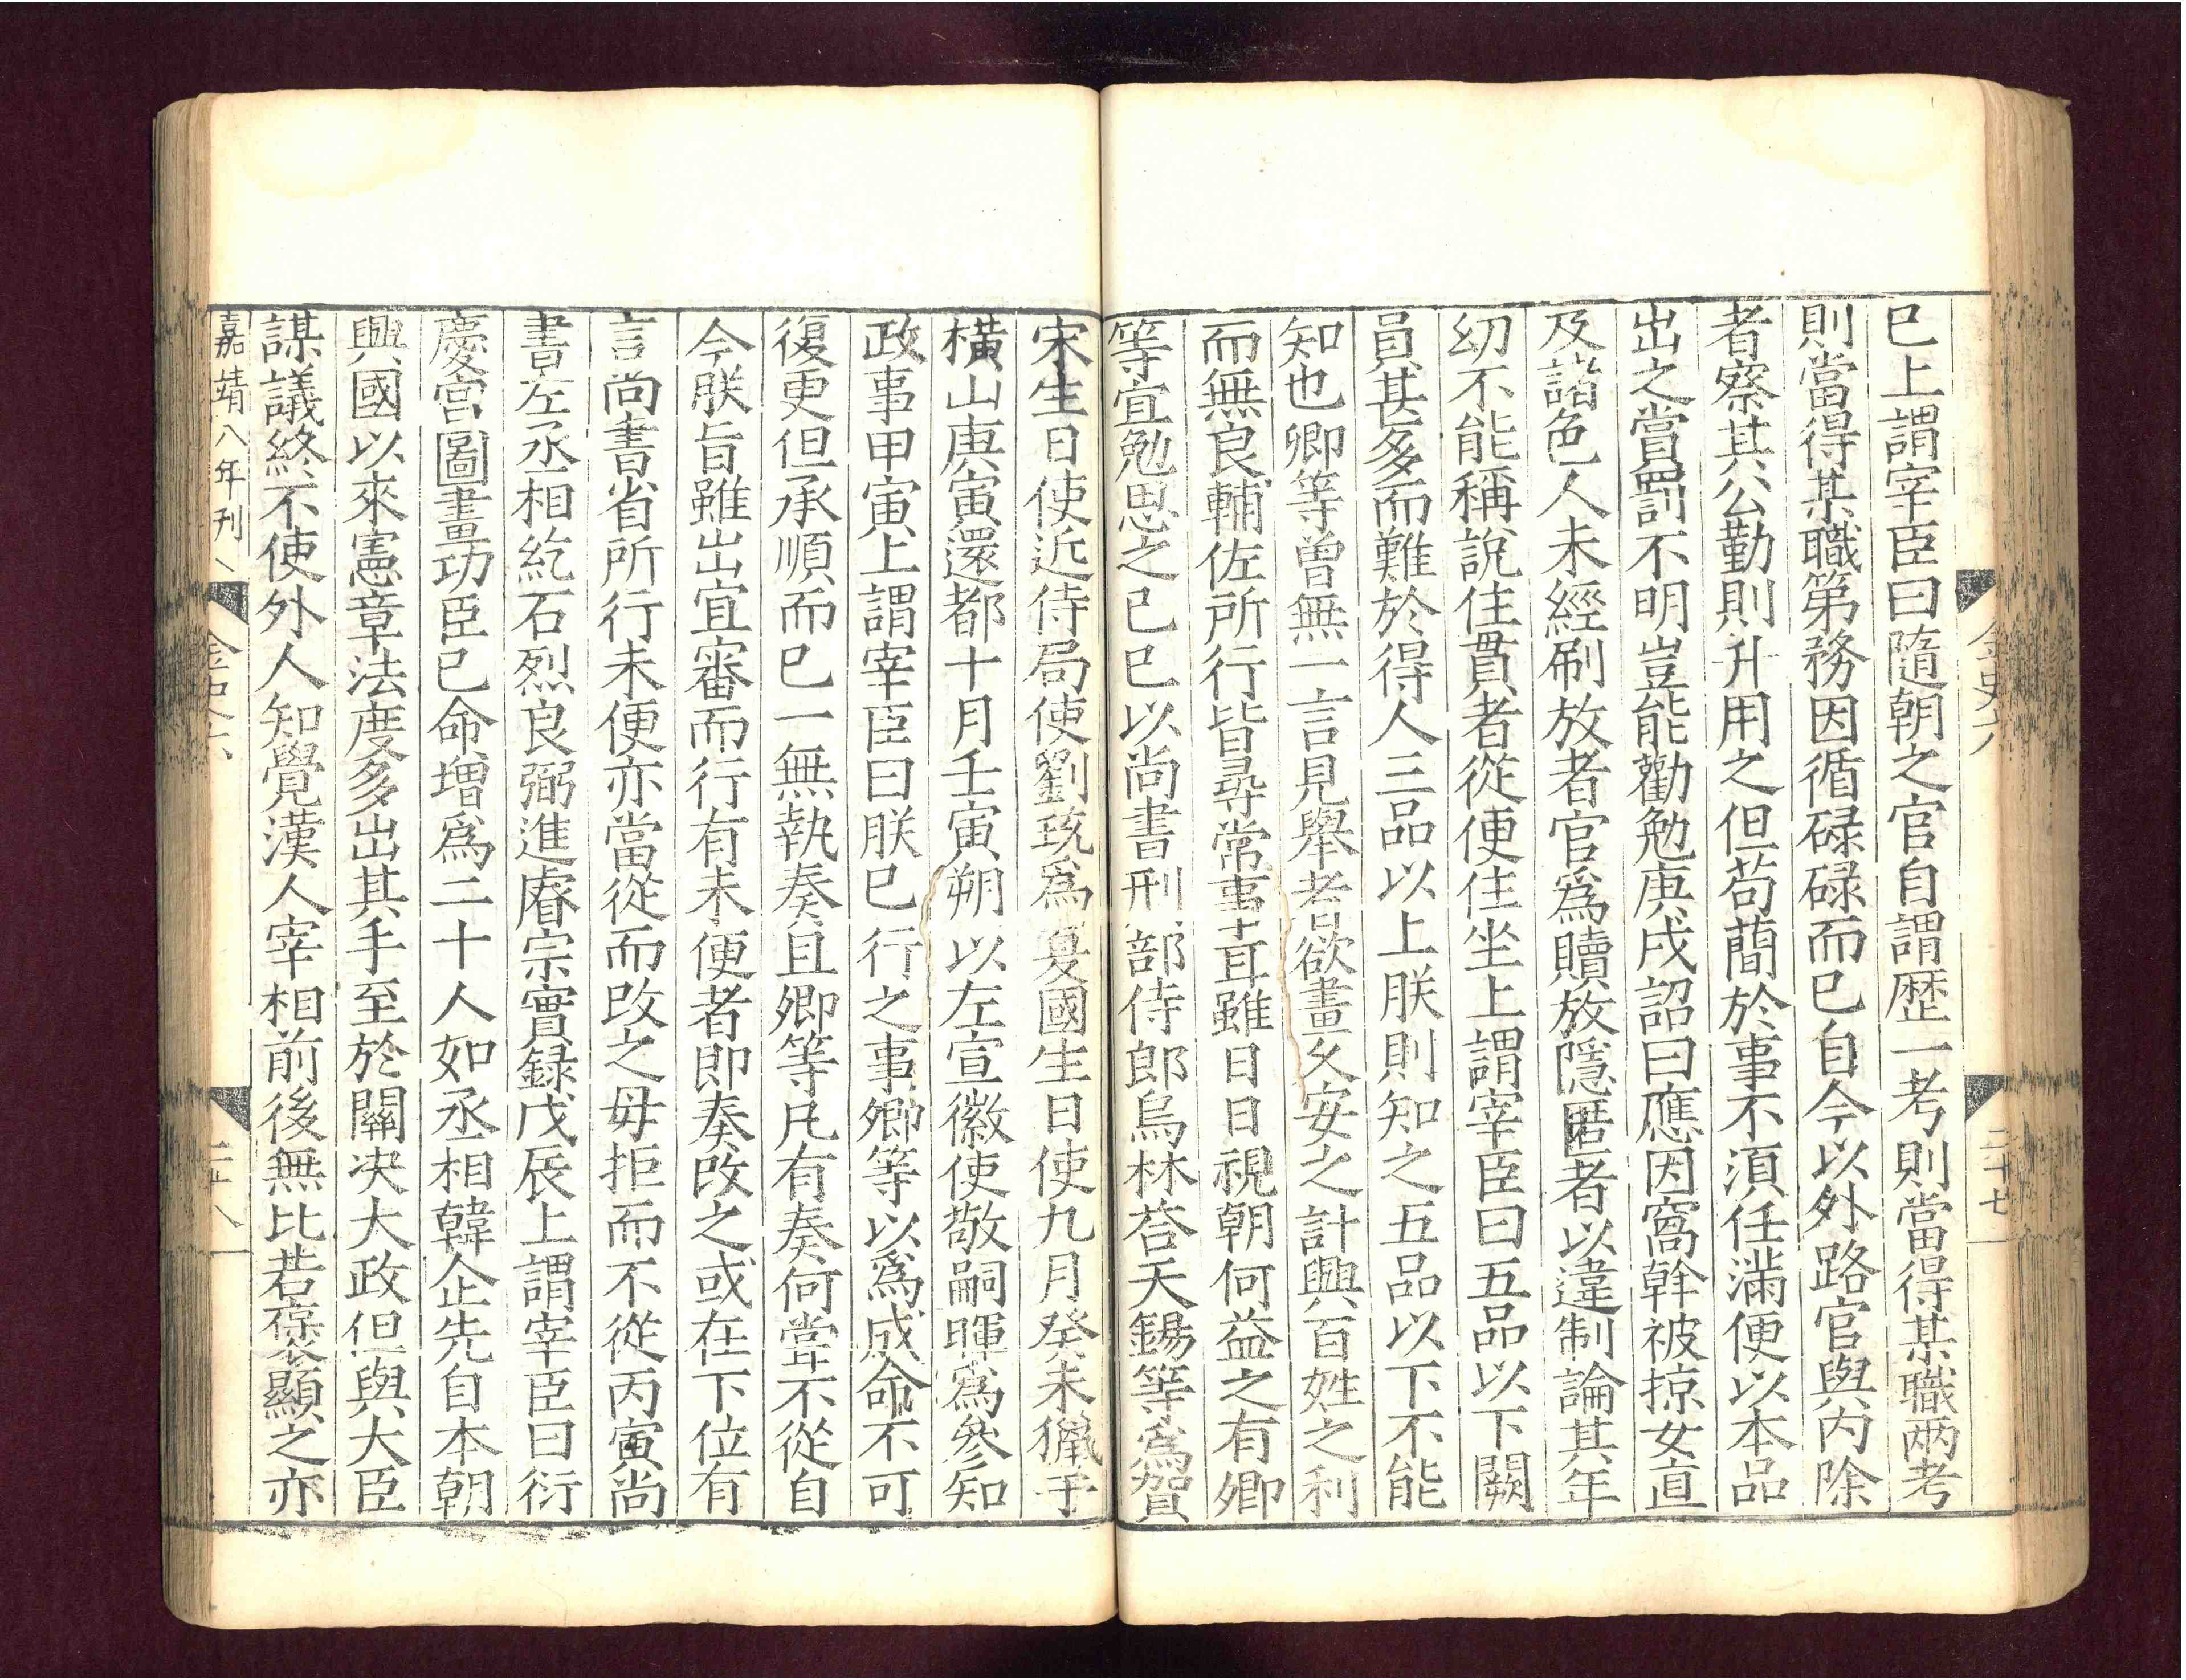 金史六
二十七
巳上謂宰臣曰隨朝之官自謂歷一考則當得某職兩考
則當得某職第務因循碌碌而已自今以外路官與內除
者察其公勤則升用之但苟簡於事不須任滿便以本品
出之賞罰不明豈能勸勉庚戌詔曰應因窩幹被掠女直
及諸色人未經刷放者官爲贖放隱匿者以違制論其年
幼不能稱說住貫者從便住坐上謂宰臣曰五品以下闕
員甚多而難於得人三品以上朕則知之五品以下不能
知也卿等曾無一言見舉者欲畫久安之計興百姓之利
而無良輔佐所行皆尋常事耳雖日日視朝何益之有卿
等宜勉思之己巳以尚書刑部侍郎烏林荅天錫等爲賀
宋生日使近侍局使劉珫爲夏國生日使九月癸未獵于
橫山庚寅還都十月壬寅朔以左宣徽使敬嗣暉爲參知
政事甲寅上謂宰臣曰朕已行之事卿等以爲成命不可
復更但承順而已一無執奏且卿等凡有奏何嘗不從自
今朕旨雖出宜審而行有未便者即奏改之或在下位有
言尚書省所行未便亦當從而改之毋拒而不從丙寅尚
書左丞相紇石烈良弼進睿宗實録戊辰上謂宰臣曰衍
慶宮圖畫功臣已命增爲二十人如丞相韓企先自本朝
興國以來憲章法度多出其手至於關决大政但與大臣
謀議終不使外人知覺漢人宰相前後無比若褒顯之亦
嘉靖八年刊
金史六
二十八